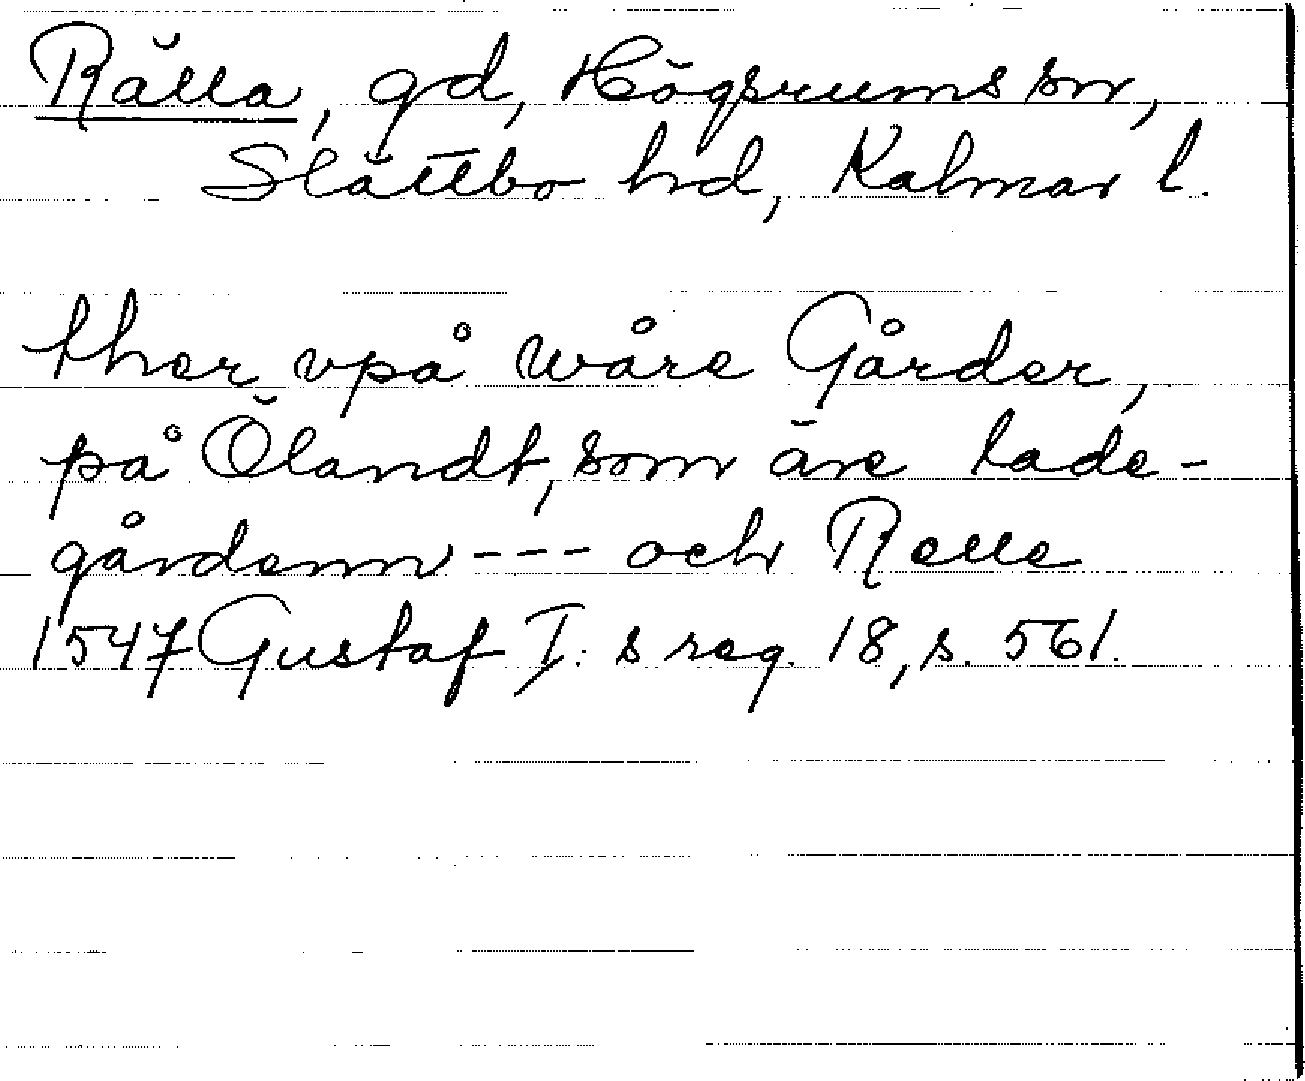 Rälla, gd, Högsrums sn,
Slättbo hd, Kalmar l.
ther vpå wåre Gårder,
på Ölandt, som äre lade-
gårdenn --- och Relle
1547 Gustaf I:s reg. 18, s. 561.